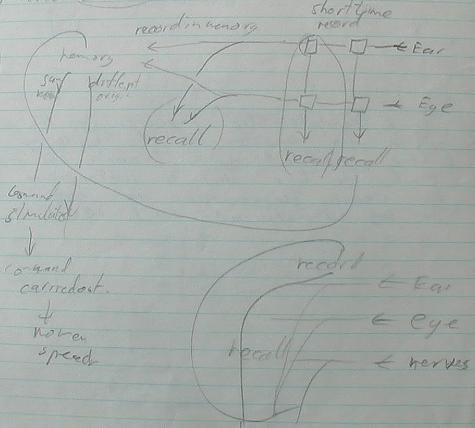 short time
record
record in memory
memory
Ear
Eye
recall
recall
recall
command
simulated
command
carried out.
record
Ear
eye
recall
nerves